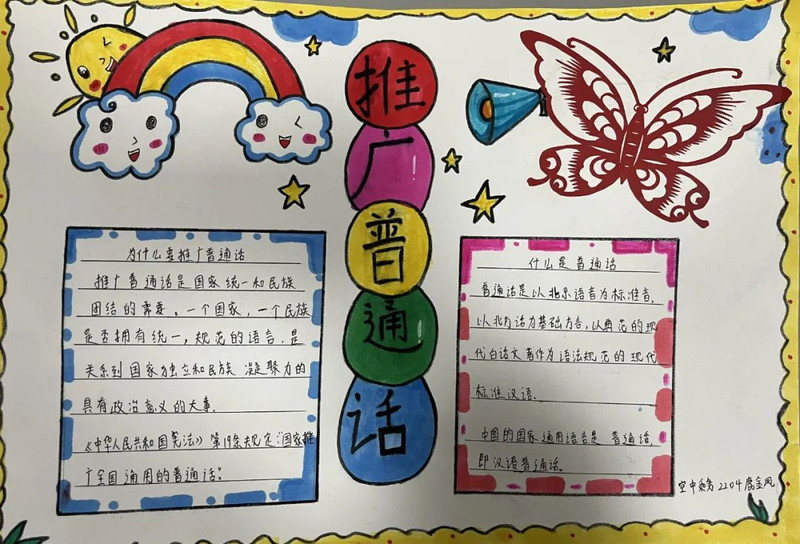 推
广
普
通
话
为什么要推广普通话
推广普通话是国家统一和民族
团结的需要。一个国家,一个民族
是否拥有统一,规范的语言,是
关系到国家为独立和民族凝聚力的
具有政治意义的大事.
《中华人民共和国宪法》第19条规定:"国家推
广全国通用的普通话".
什么是普通话
普通话是以北京语音为标准音,
以北方话为基础方言,以典范的现
代白话文著作为语法规范的现代
标准汉语.
中国的国家通用语言是普通话,
即汉语普通话.
空中乘务2204